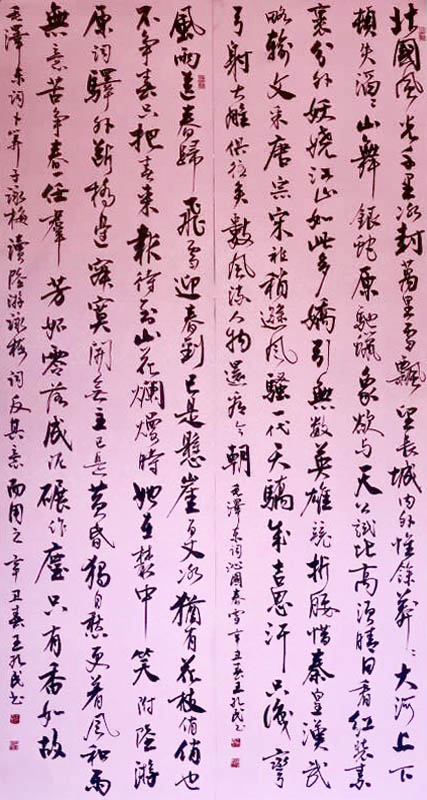 北國風光千里冰封萬里雪飄望長城内外惟餘莽〻大河上下
頓失滔〻山舞銀蛇原馳蠟象欲与天公試比高須晴日看紅裝素
裹分外妖嬈江山如此多嬌引無數英雄競折腰惜秦皇漢武
略輸文采唐宗宋祖稍遜風騷一代天驕成吉思汗只識彎
弓射大雕俱往矣數風流人物還看今朝 毛澤東詞沁園春雪辛丑春王孔民书
風雨送春歸飛雪迎春到已是懸崖百丈冰猶有花枝俏俏也
不争春只把春來報待到山花爛熳時她在叢中笑附陸游
原詞驛外斷橋邊寂寞開無主已是黄昏獨自愁更着風和雨
無意苦争春一任羣芳妒零落成泥碾作塵只有香如故
毛澤東詞卜算子咏梅讀陸游咏梅詞反其意而用之辛丑春王孔民书